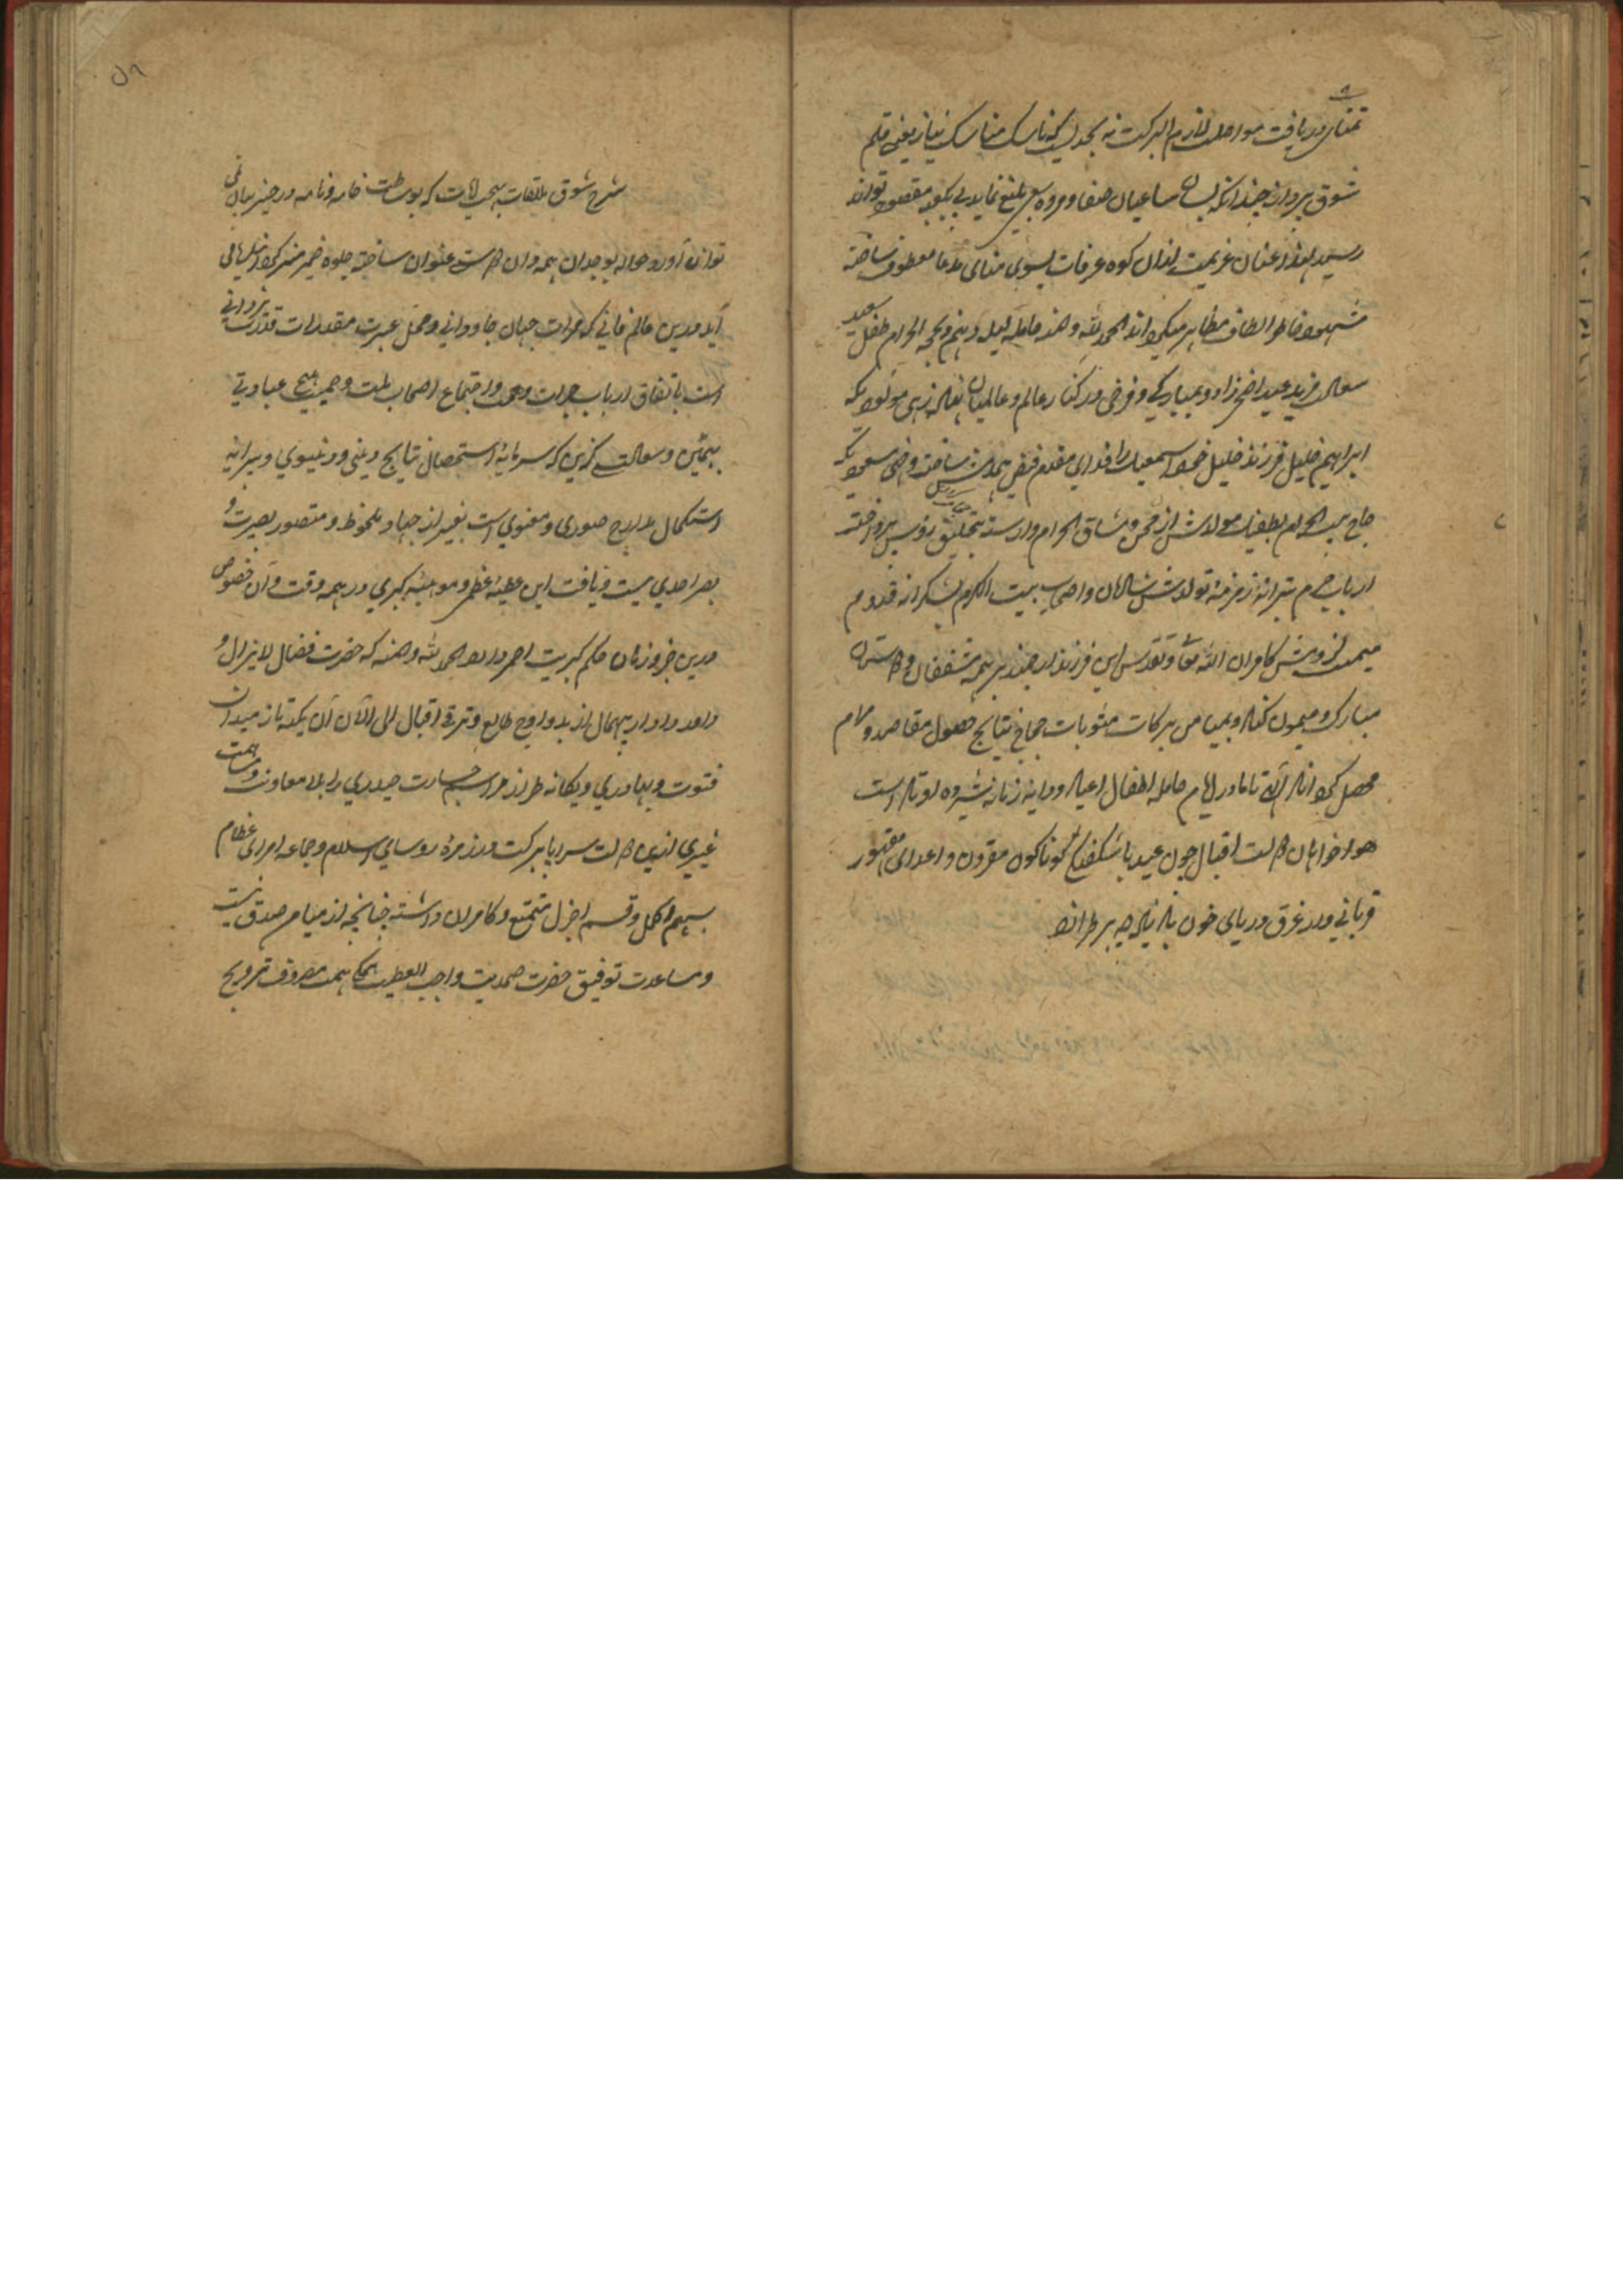 تمنای دریافت مواصلت لازم البرکت نه بحدیست که ناسک مناسک نیاز یعنی قلم
شوق پرداز چندانکه بسان ساعیان صفا و مروه سعی بلیغ نماید پی بکعبه مقصود تواند
رسید لهذا عنان عزیمت ازان کوه عرفات بسوی منای مدعا معطوف ساخته
مشهود خاطر الطاف مظاهر میگرداند الحمد لله و المنه حامله لیله دهم ذیحجه الحرام طفل سعید
سعادت مزید عید اضحی زاد و بمبارکی و فرخی در کنار عالم و عالمیان نهاد زهی مولودیکه
ابراهیم خلیل فرزند خلیل خود اسمعیل را فدای مقدم فیض توامش ساخت و خهی مسعودیکه
حاج بیت الحرام بطفیل مولدش از محن و مشاق احرام وارسته بتحلیق رؤس پرداخته
ارباب حرم بترانه زمزمه تولدش شادان و اصحاب بیت المکرم بشکرانه قدوم
میمنت لزومش کامران الله تعالی و تقدس این فرزند ارجمند بر همه مشفقان و دوستان
مبارک و میمون کناد و بمیامن برکات مثوبات حجاج نتایج حصول مقاصد و مرام
محصل گرداناد الهی تا مادر ایام حامله اطفال اعیاد و دایه زمانه شیرده لوتاد است
هواخواهان دولت اقبال چون عید با شکفتگی گوناگون مقرون و اعدای مقهور
قربانی وار غرق دریای خون باد زیاده چه برطرازد
شرح شوق ملاقات بهجت آیات که بوساطت خامه و نامه در حیز بیان نمی
تواند آورد حواله بوجدان همه دان دوست عنوان ساخته جلوه ضمیر منیر
آید درین عالم فانی که مرات جهان جاودانی و محل عبرت مقدرات قدرت یزدانی
است باتفاق ارباب جرات و همت و اجتماع اصحاب ملت و حمیت هیچ عبادتی
بهمین و سعادت گزین که سرمایه استحصال نتایج دینی و دنیوی و پیرایه
استکمال مدارج صوری و معنوی است بغیر از جهاد ملحوظ و متصور بصیرت و
بصر احدی نیست و یافت این عطیه عظمی و موهبه کبری در همه وقت و آن خصوص
درین جزو زمان حکم کبریت احمر دارد الحمد لله و المنه که حضرت فضال لایزال و
واحد دادار بیهمال از بدو اوج طالع و ترقی اقبال الی الآن آن یکه تاز میدان
فتوت و بهادری و یگانه طراز مراسم جسارت حیدری را بلا معاونت و مشارکت
غیری ازین دولت سراپا برکت در زمره روسای اسلام و جماعه امرای عظام
بسهم اکمل و قسم اجزل متمتع و کامران داشته چنانچه از میامن صدق نیت
و مساعدت توفیق حضرت صمدیت واجب العطیت همگی همت مصروف ترویج